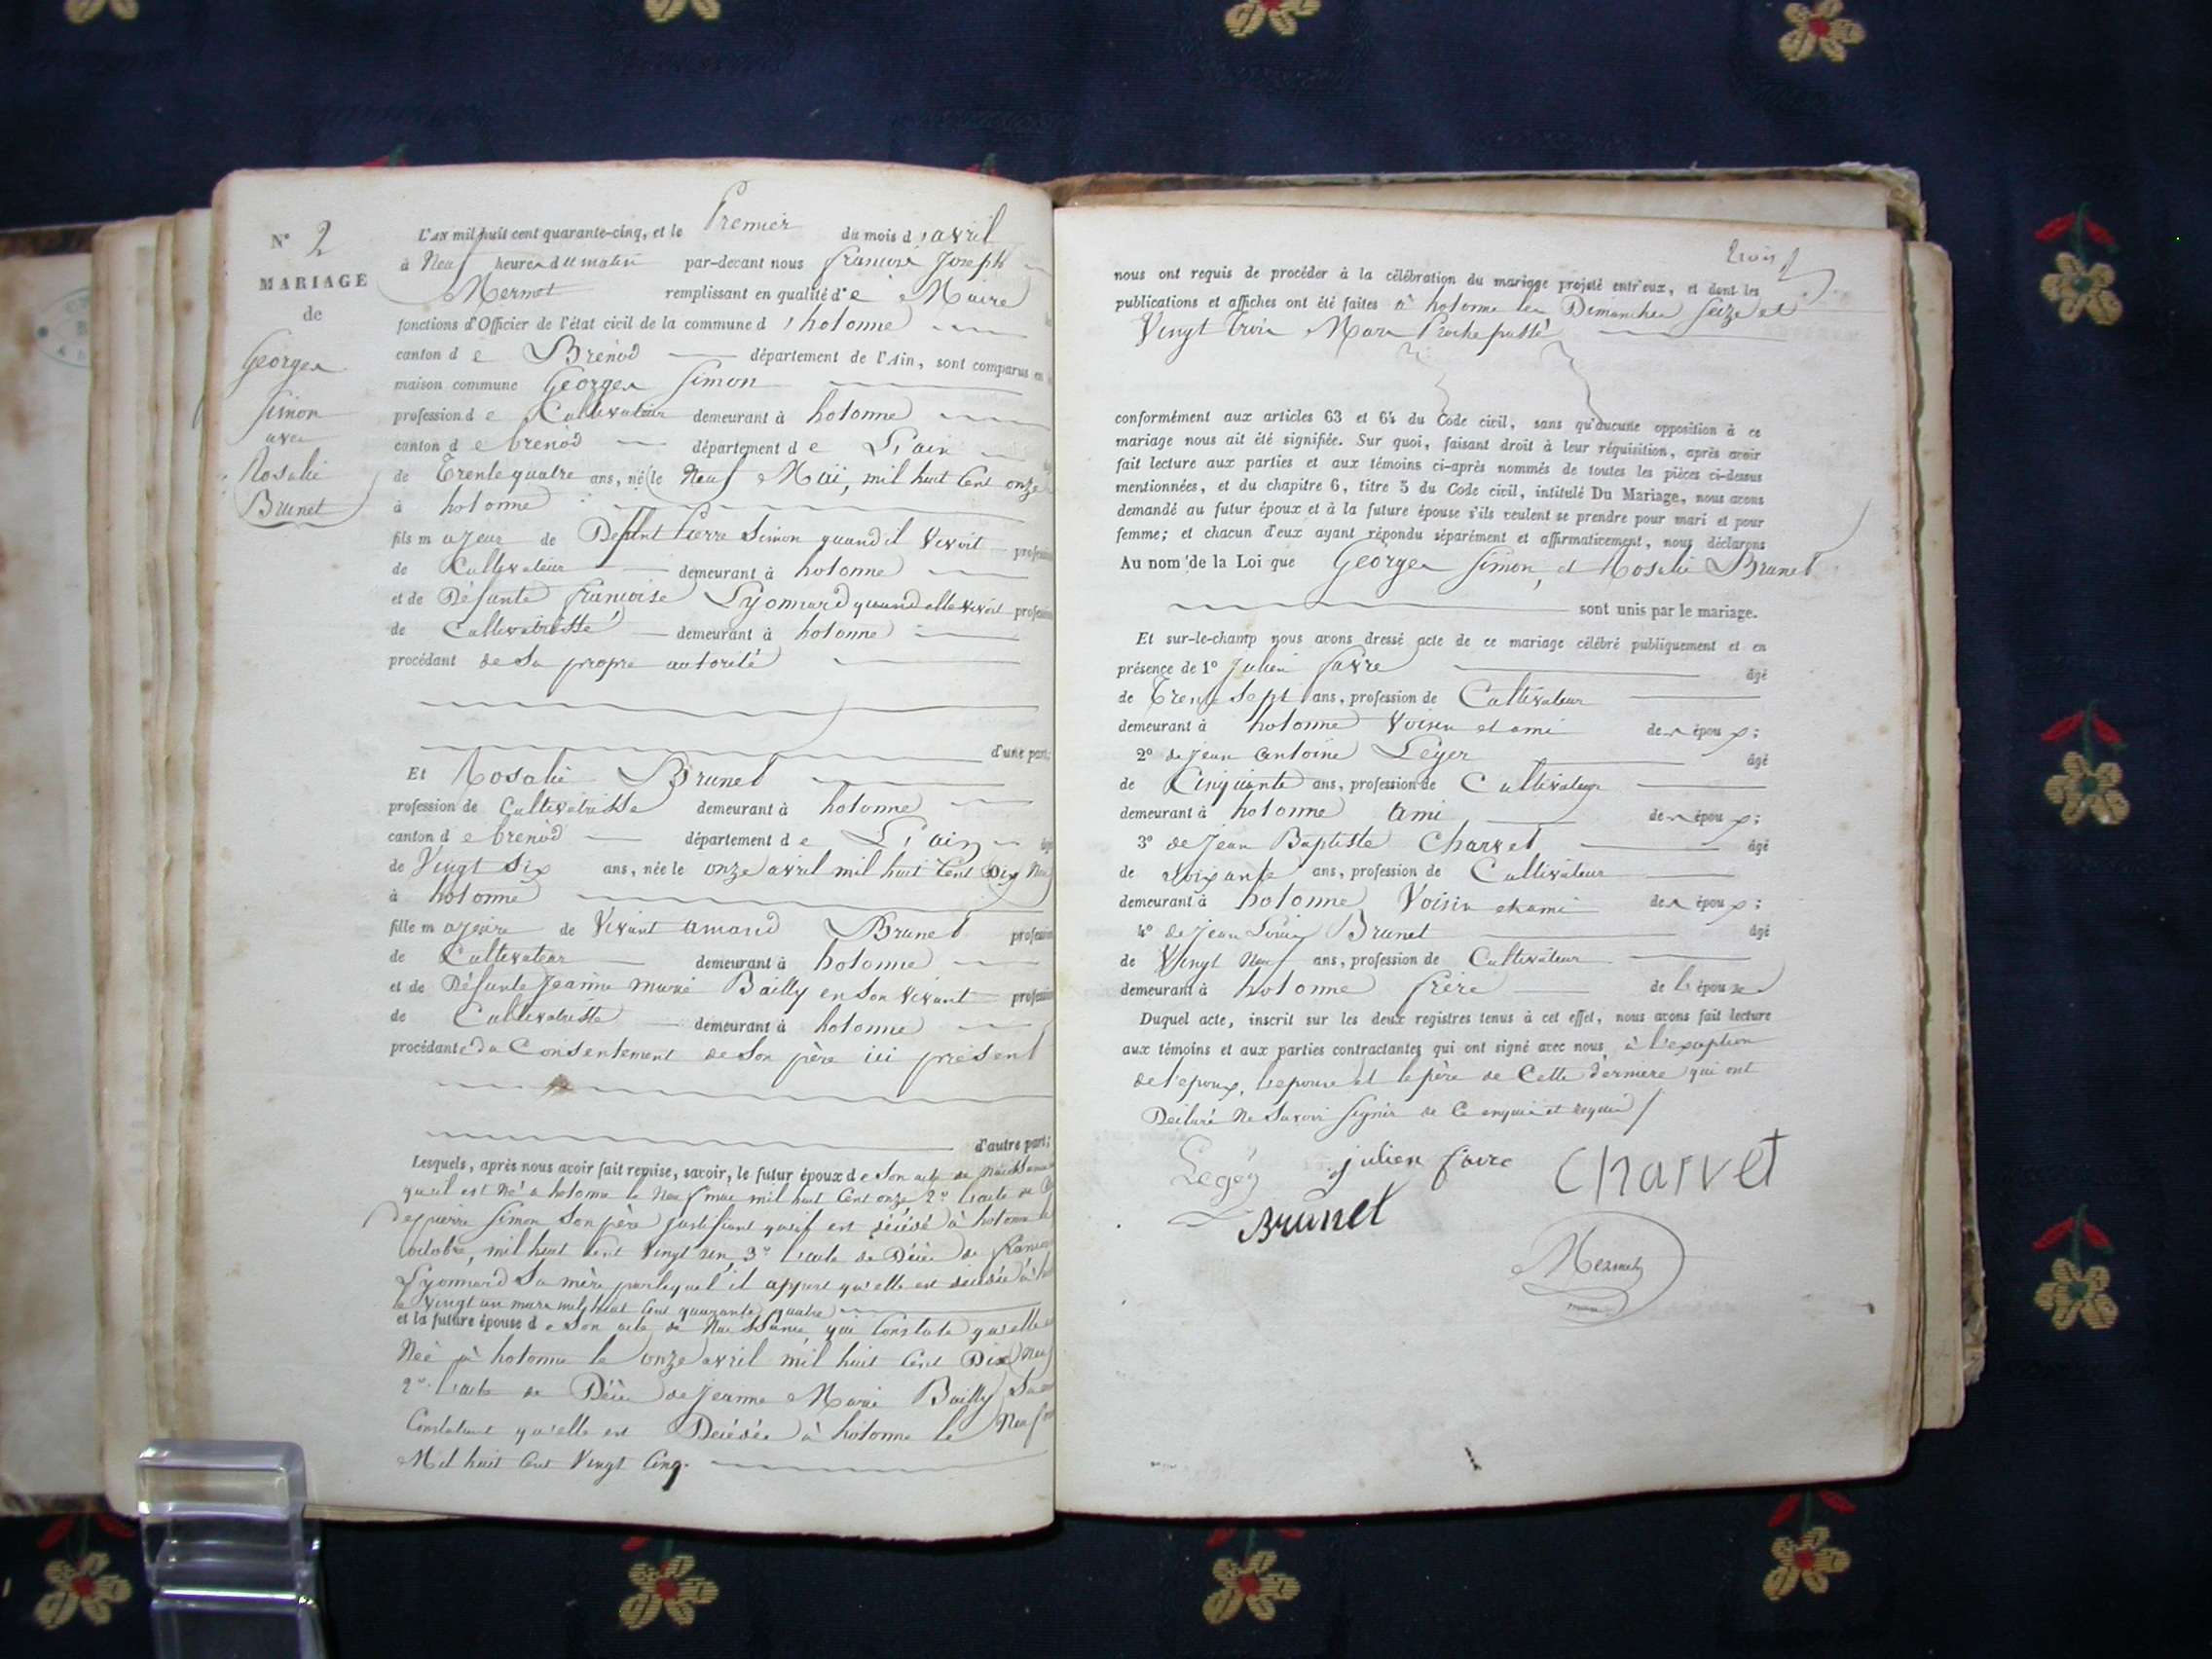 N° 2
MARIAGE
de
Georges
Simon
avec
Rosalie
Brunet
L'AN mil huit cent quarante-cinq, et le Premier du mois d'avril
à Neuf heures du matin par-devant nous françois Joseph
Mermet remplissant en qualité de Maire
fonctions d'Officier de l'état civil de la commune d'hotonne
canton de Brénod département de l'Ain, sont comparus en
maison commune Georges Simon
profession de Cultivateur demeurant à hotonne
canton de brenod département de L'ain
de Trente quatre ans, né le Neuf Mai, mil huit Cent onze
à hotonne
fils majeur de Défunt Pierre Simon quand il Vivoit profession
de Cultivateur demeurant à hotonne
et de Défunte françoise Lyonnard quand elle vivoit profession
de Cultivatrisse demeurant à hotonne
procédant de Sa propre autorité
d'une part;
Et Rosalie Brunet
profession de Cultivatrisse demeurant à hotonne
canton de brenod département de L'ain
de Vingt Six ans, née le onze avril mil huit Cent Dix Neuf
à hotonne
fille majeure de Vivant amand Brunet profession
de Cultivateur demeurant à hotonne
et de Défunte Jeanne marie Bailly en Son vivant profession
de Cultivatrisse demeurant à hotonne
procédante du Consentement de Son père ici présent
d'autre part;
Lesquels, après nous avoir fait remise, savoir, le futur époux de Son acte de Naissance
qu'il est Né à hotonne le Neuf mai mil huit Cent onze 2° l'acte de
de pierre Simon Son père justifiant qu'il est décédé à hotonne
octobre, mil huit Cent Vingt un, 3° l'acte de Décès de
Lyonnard Sa mère par lequel il appert qu'elle est décédée à
le Vingt un mars mil huit Cent quarante quatre
et la future épouse de Son acte de Naissance, qui Constate qu'elle
Née à hotonne le onze avril mil huit Cent Dix Neuf
2° l'acte de Décès de Jeanne Marie Bailly Sa
Constatant qu'elle est Décédée à hotonne le Neuf
Mil huit Cent Vingt Cinq.
trois
nous ont requis de procéder à la célébration du mariage projeté entr'eux, et dont les
publications et affiches ont été faites à hotonne les Dimanches Seize et
Vingt Trois Mars Proche passé
conformément aux articles 63 et 64 du Code civil, sans qu'aucune opposition à ce
mariage nous ait été signifiée. Sur quoi, faisant droit à leur réquisition, après avoir
fait lecture aux parties et aux témoins ci-après nommés de toutes les pièces ci-dessus
mentionnées, et du chapitre 6, titre 5 du Code civil, intitulé Du Mariage, nous avons
demandé au futur époux et à la future épouse s'ils veulent se prendre pour mari et pour
femme; et chacun d'eux ayant répondu séparément et affirmativement, nous déclarons
Au nom de la Loi que Georges Simon, et Rosalie Brunet
sont unis par le mariage.
Et sur-le-champ nous avons dressé acte de ce mariage célébré publiquement et en
présence de 1° Julien favre âgé
de Trente Sept ans, profession de Cultivateur
demeurant à hotonne Voisin et ami des époux;
2° de Jean antoine Léger âgé
de Cinquante ans, profession de Cultivateur
demeurant à hotonne ami des époux;
3° de Jean Baptiste Charvet âgé
de Soixante ans, profession de Cultivateur
demeurant à hotonne Voisin et ami des époux;
4° de Jean Louis Brunet âgé
de Vingt Neuf ans, profession de Cultivateur
demeurant à hotonne frère de l'épouse
Duquel acte, inscrit sur les deux registres tenus à cet effet, nous avons fait lecture
aux témoins et aux parties contractantes qui ont signé avec nous à l'exception
de l'époux, l'epouse et le père de Cette dernière qui ont
Déclaré Ne Savoir Signer de Ce enquis et requis
Leger julien favre Charvet
Brunet
Mermet